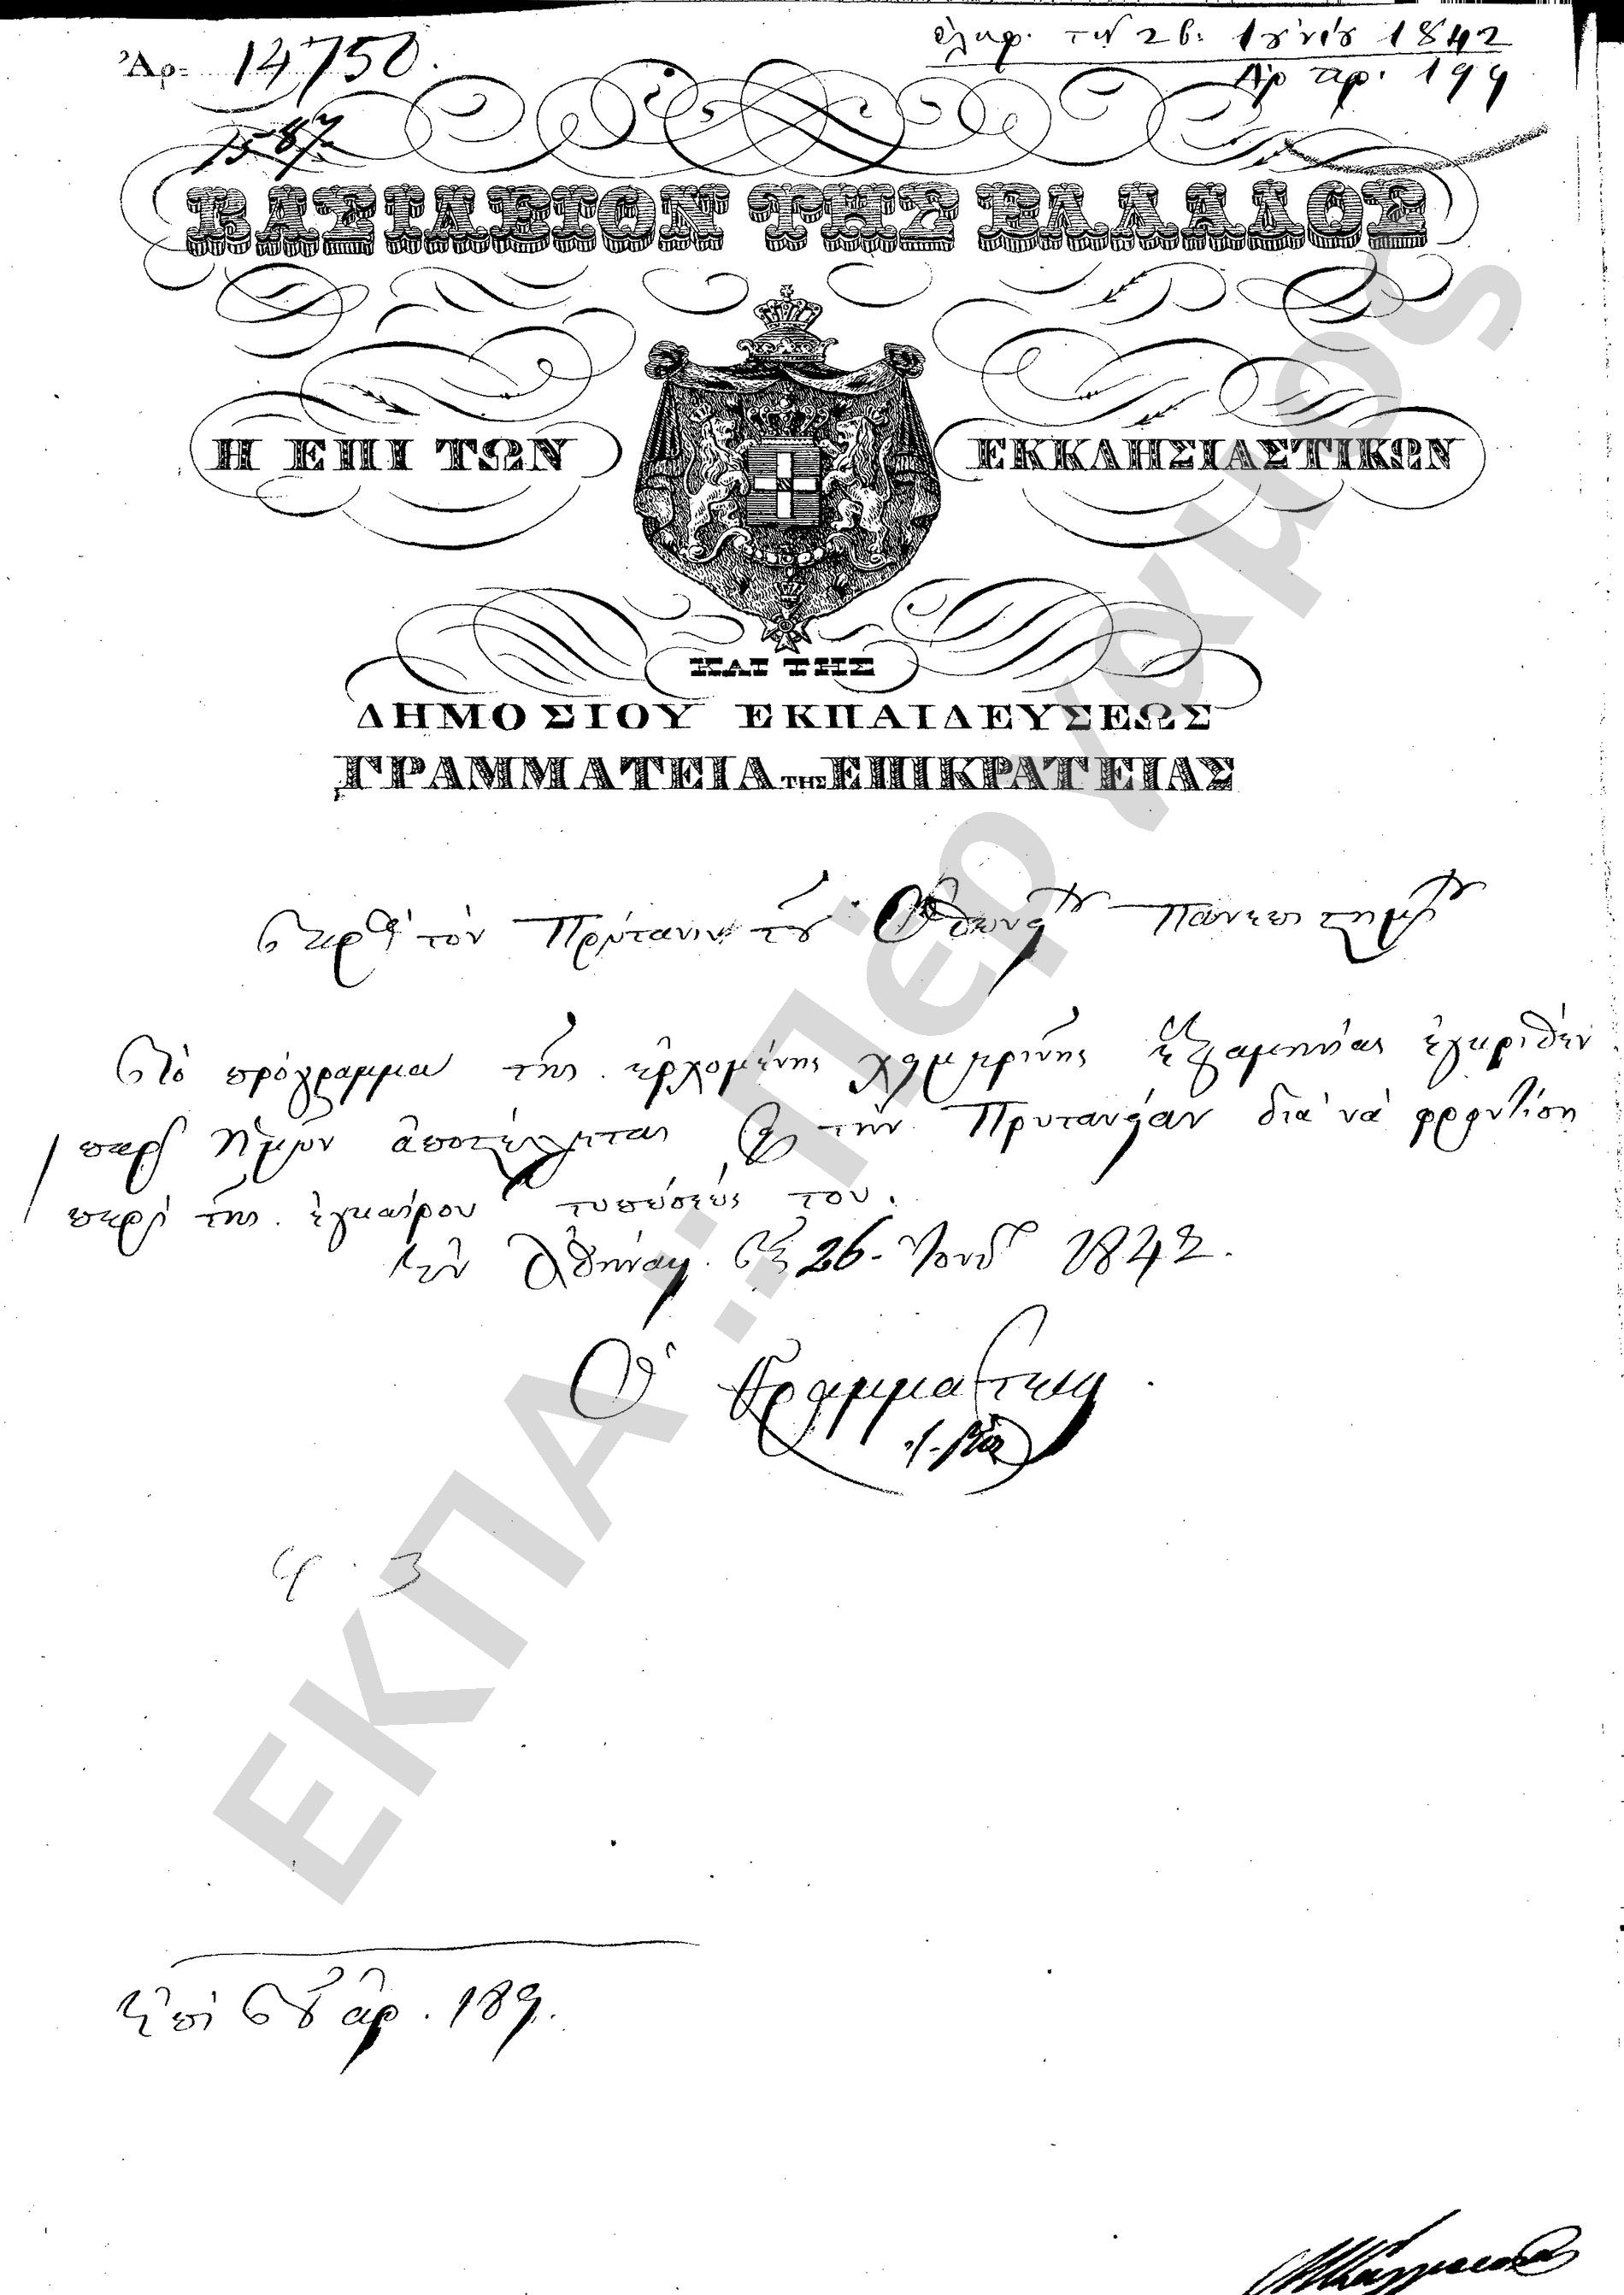 Ἀρ. 14750.
ἐλήφ. τῇ 26. Ἰουνίου 1842
Ἀρ πρ. 199
1587
ΒΑΣΙΛΕΙΟΝ ΤΗΣ ΕΛΛΑΔΟΣ
Η ΕΠΙ ΤΩΝ ΕΚΚΛΗΣΙΑΣΤΙΚΩΝ
ΚΑΙ ΤΗΣ
ΔΗΜΟΣΙΟΥ ΕΚΠΑΙΔΕΥΣΕΩΣ
ΓΡΑΜΜΑΤΕΙΑ ΤΗΣ ΕΠΙΚΡΑΤΕΙΑΣ
τὸν Πρύτανιν τοῦ Ὀθωνείου Πανεπιστημίου
Τὸ πρόγραμμα τῆς ἐρχομένης χειμερινῆς ἑξαμηνίας ἐγκριθὲν
παρ' ἡμῶν ἀποστέλλεται εἰς τὴν Πρυτανείαν διὰ νὰ φροντίση
περὶ τῆς ἐγκαίρου τυπώσεώς του.
Ἐν Ἀθήναις τῇ 26 Ἰουνίου 1842.
Ὁ Γραμματεὺς
3
Ἐπὶ τοῦ ἀρ. 189.
ΕΚΠΑ... Πέργαμος